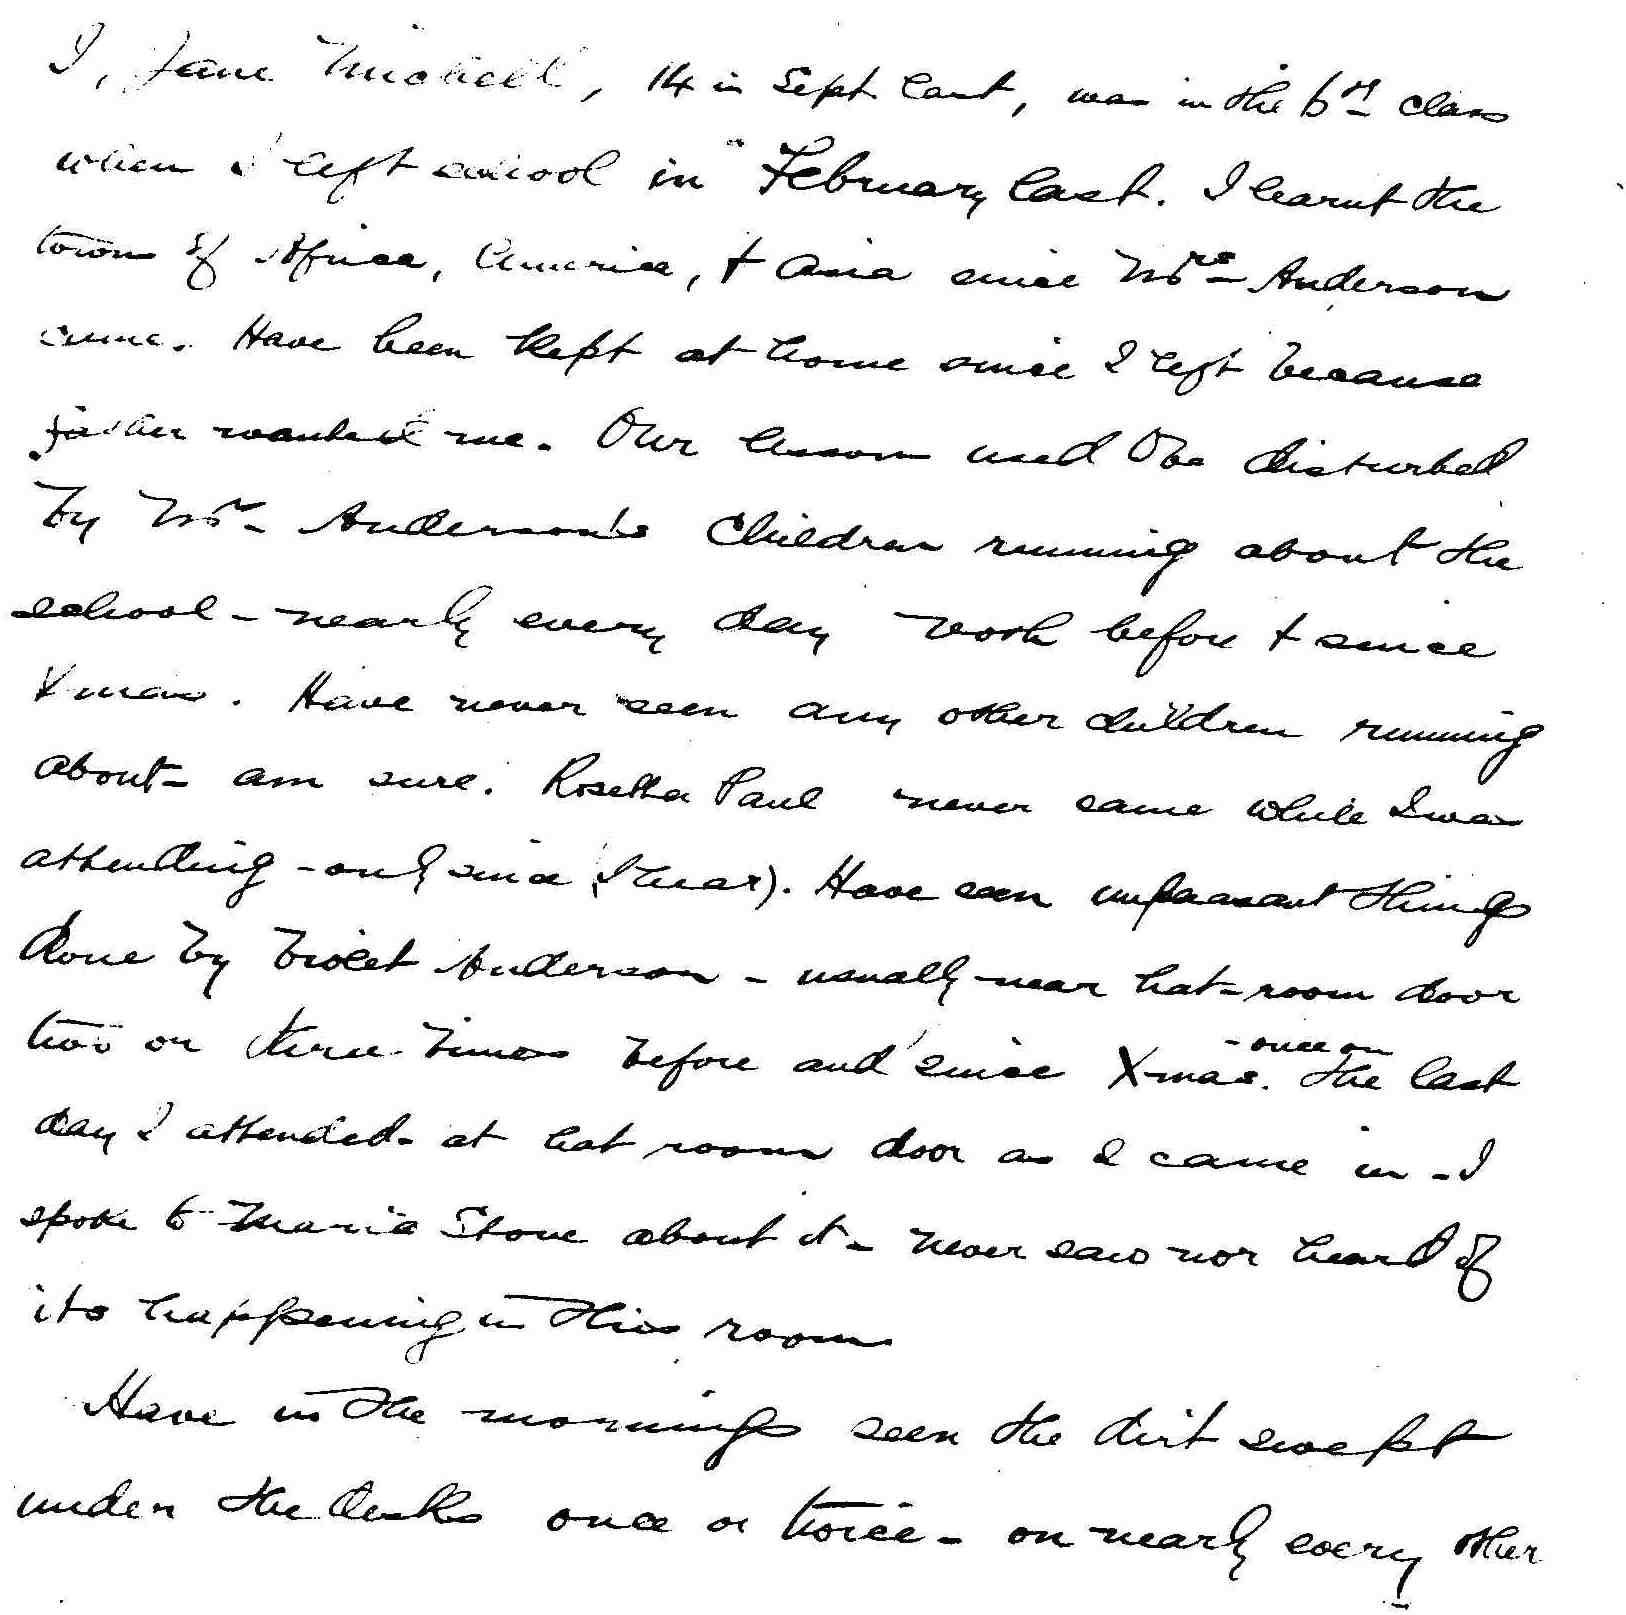 I, Jane Michell, 14 in Sept last, was in the 6th class
when I left school in February last. I learnt the
towns of Africa, America, + Asia since Mrs Anderson
came. Have been kept at home since I left because
father wanted me. Our lessons used to be disturbed
by Mr Anderson's children running about the
school - nearly every day both before + since
Xmas. Have never seen any other children running
about - am sure. Rosetta Paul never came while I was
attending - only since (I hear). Have seen unpleasant things
done by Violet Anderson - usually near hat-room door
two or three times before and since Xmas. - once on the last
day I attended - at hat room door as I came in - I
spoke to Maria Stone about it - never saw nor heard of
its happening in this room
Have in the mornings seen the dirt swept
under the desks once or twice - on nearly every other